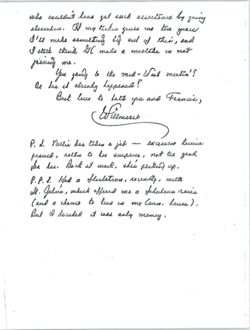 who couldn't have got such assistance by going
elsewhere. If my ticker gives me two years
I'll make something by out of this, and
I still think GC made a mistake in not
joining me.
You going to the mid-West meetin'?
Or has it already happened?
Best love to both you and Francis,
P.S. has taken a job —
proved, rather to her surprise, not too good
for her. Back at work, she's perked up.
P.P.S. Had a flirtation, recently, with
St. John's, which offered me a fabulous raise
(and a chance to live in my Conn. house).
But I decided it was only money.